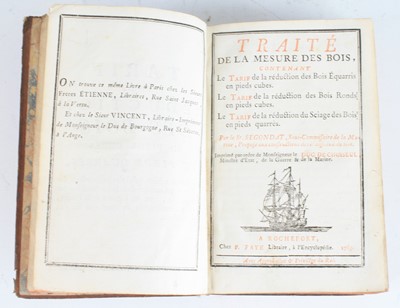 ON trouve ce même Livre à Paris chez les
Freres ETIENNE, Libraires, Rue Saint Jacques
à la Vertu.
Et chez le Sieur VINCENT, Libraire-Imprimeur
de Monseigneur le Duc de Bourgogne, Rue St Severin,
à l'Ange.
TRAITÉ
DE LA MESURE DES BOIS,
CONTENANT
Le TARIF de la réduction des Bois Equarris
en pieds cubes.
Le TARIF de la réduction des Bois Ronds
en pieds cubes.
Le TARIF de la réduction du Sciage des Bois
en pieds quarrés.
Par le Sr SEGONDAT, Sous-Commissaire de la Ma-
rine,
Imprimé par ordre de Monseigneur le DUC DE CHOISEUL
Ministre d'Etat, de la Guerre & de la Marine.
A ROCHEFORT,
Chez Libraire, à l'Encyclopédie.